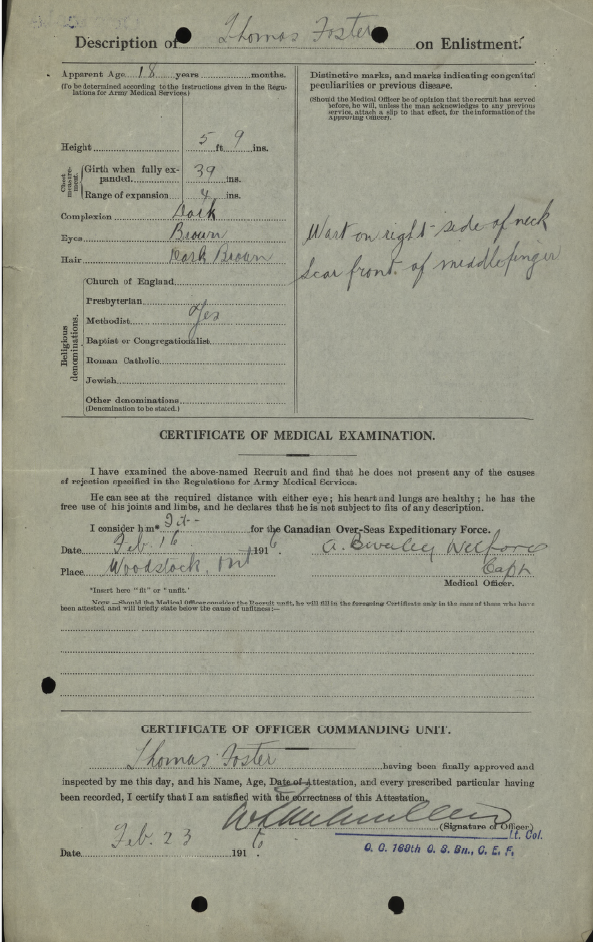 Description of Thomas Foster on Enlistment.
Apparent Age 18 years months.
(To be determined according to the instructions given in the Regulations for Army Medical Services)
Distinctive marks, and marks indicating congenital
peculiarities or previous disease.
(Should the Medical Officer be of opinion that the recruit has served
before, he will, unless the man acknowledges to any previous
service, attach a slip to that effect, for the information of the
Approving Officer).
Height 5 ft 9 ins.
Chest measurement.
Girth when fully expanded 39 ins.
Range of expansion 4 ins.
Complexion Dark
Eyes Brown
Hair Dark Brown
Wart on right side of neck
Scar front of middle finger
Religious denominations.
Church of England
Presbyterian
Methodist Yes
Baptist or Congregationalist
Roman Catholic
Jewish
Other denominations
(Denomination to be stated.)
CERTIFICATE OF MEDICAL EXAMINATION.
I have examined the above-named Recruit and find that he does not present any of the causes
of rejection specified in the Regulations for Army Medical Services.
He can see at the required distance with either eye; his heart and lungs are healthy; he has the
free use of his joints and limbs, and he declares that he is not subject to fits of any description.
I consider him* Fit for the Canadian Over-Seas Expeditionary Force.
Date Feb. 16 1916. A. Beverley Welford
Place Woodstock, Ont Capt
Medical Officer.
*Insert here "fit" or "unfit."
NOTE.—Should the Medical Officer consider the Recruit unfit, he will fill in the foregoing Certificate only in the case of those who have
been attested, and will briefly state below the cause of unfitness:—
CERTIFICATE OF OFFICER COMMANDING UNIT.
Thomas Foster having been finally approved and
inspected by me this day, and his Name, Age, Date of Attestation, and every prescribed particular having
been recorded, I certify that I am satisfied with the correctness of this Attestation.
(Signature of Officer)
Lt. Col.
O. C. 168th O. S. Bn., C. E. F.
Date Feb. 23 1916.